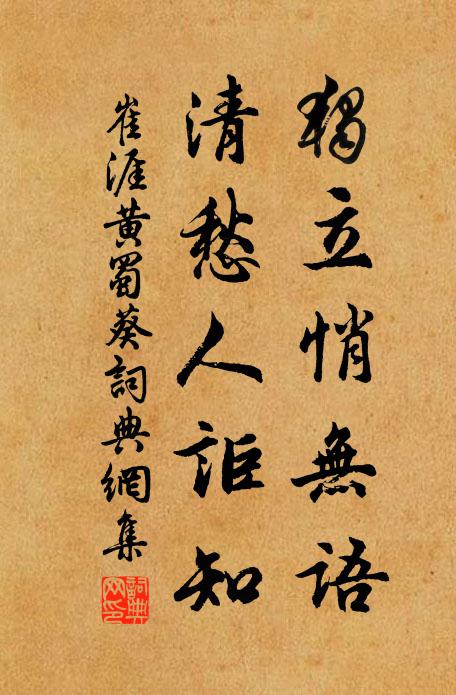 獨立悄無語
清愁人詎知
崔涯黃蜀葵詞典網集
詞典網印